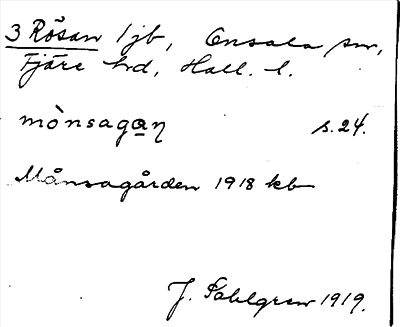 3 Rösan 1 jb, Onsala sn,
Fjäre hd, Hall. l.
mònsagan̥ s. 24.
Månsagården 1918 kb
J. Sahlgren 1919.